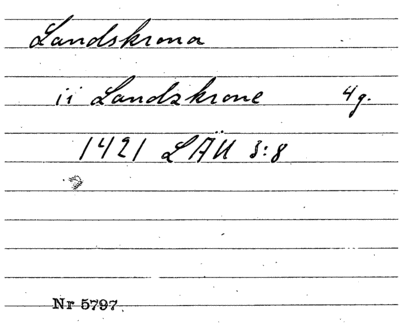 Landskrona
ii Landzkrone 4g.
1421 LÄU 3:8
Nr 5797